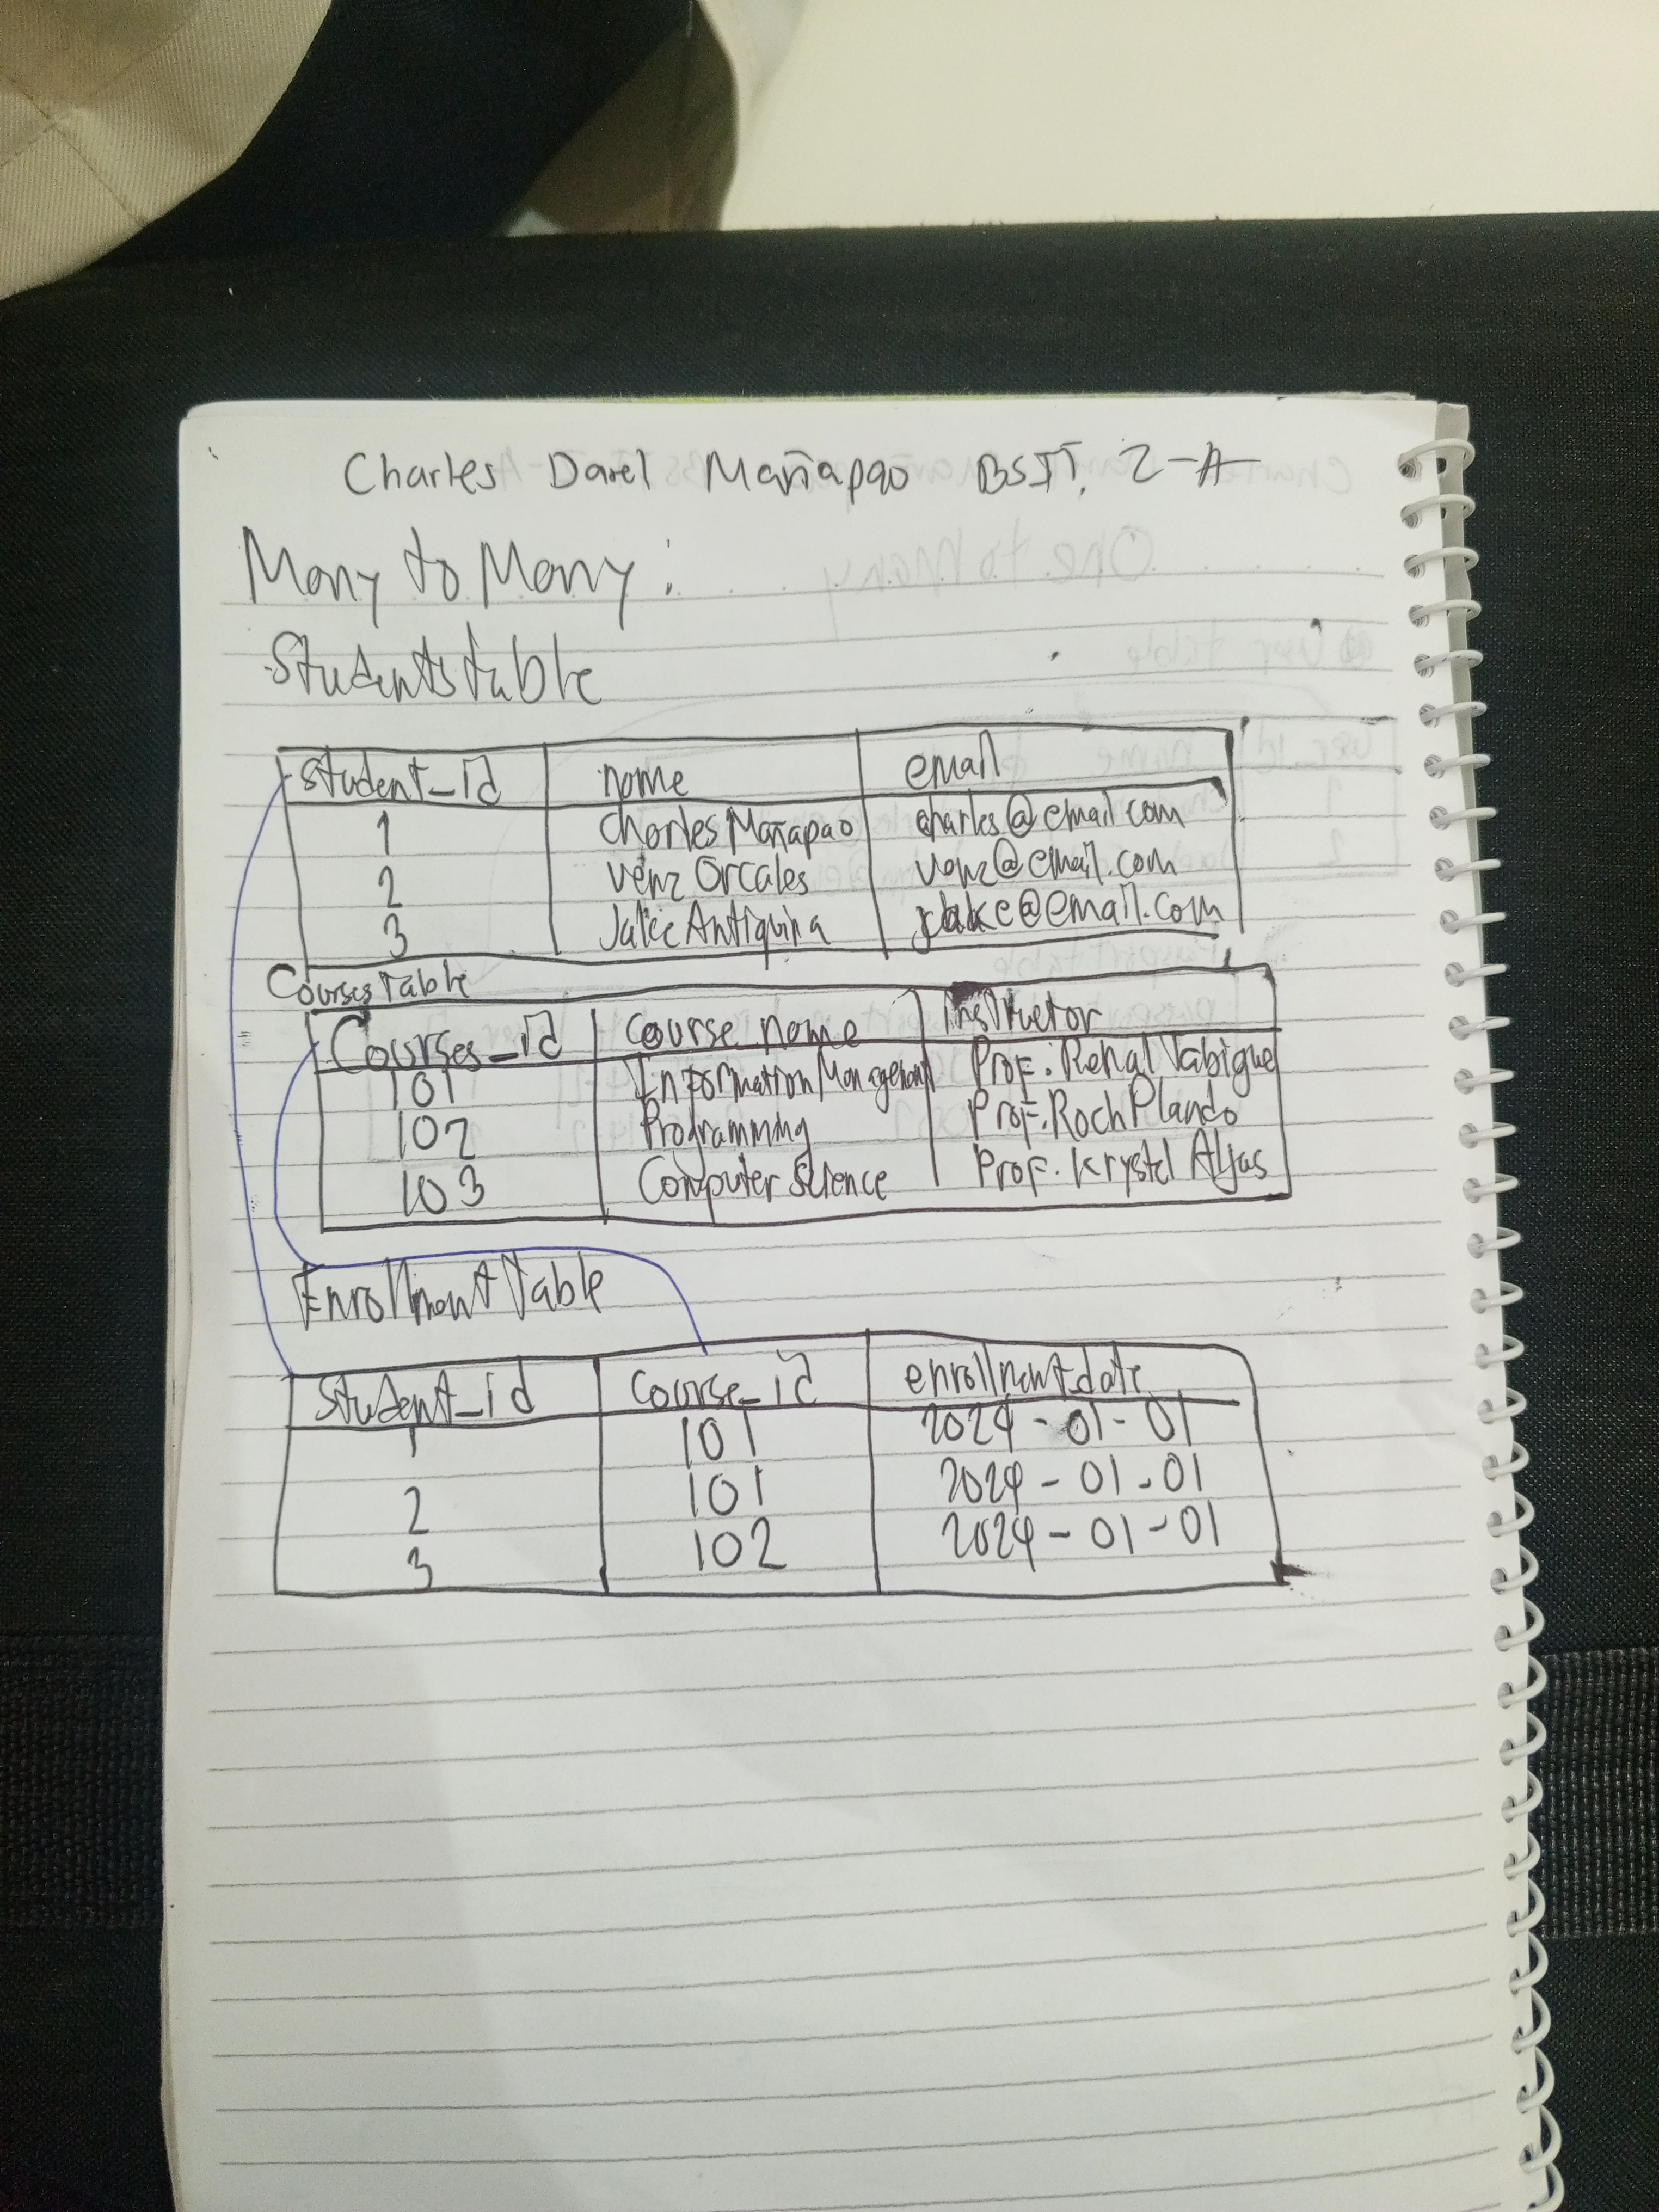 Charles Darel Mañapao BSIT. 2-A
Many to Many:
Students table
student_id name email
1 Charles Mañapao charles@email.com
2 Venz Orcales venz@email.com
3 Jake Antiquina jake@email.com
Courses Table
Courses_id Course name Instructor
101 Information Management Prof. Renal Vabigue
102 Programming Prof. Roch Plando
103 Computer Science Prof. Krystel Aljas
Enrollment Table
Student_id Course_id enrollment_date
1 101 2024-01-01
2 101 2024-01-01
3 102 2024-01-01